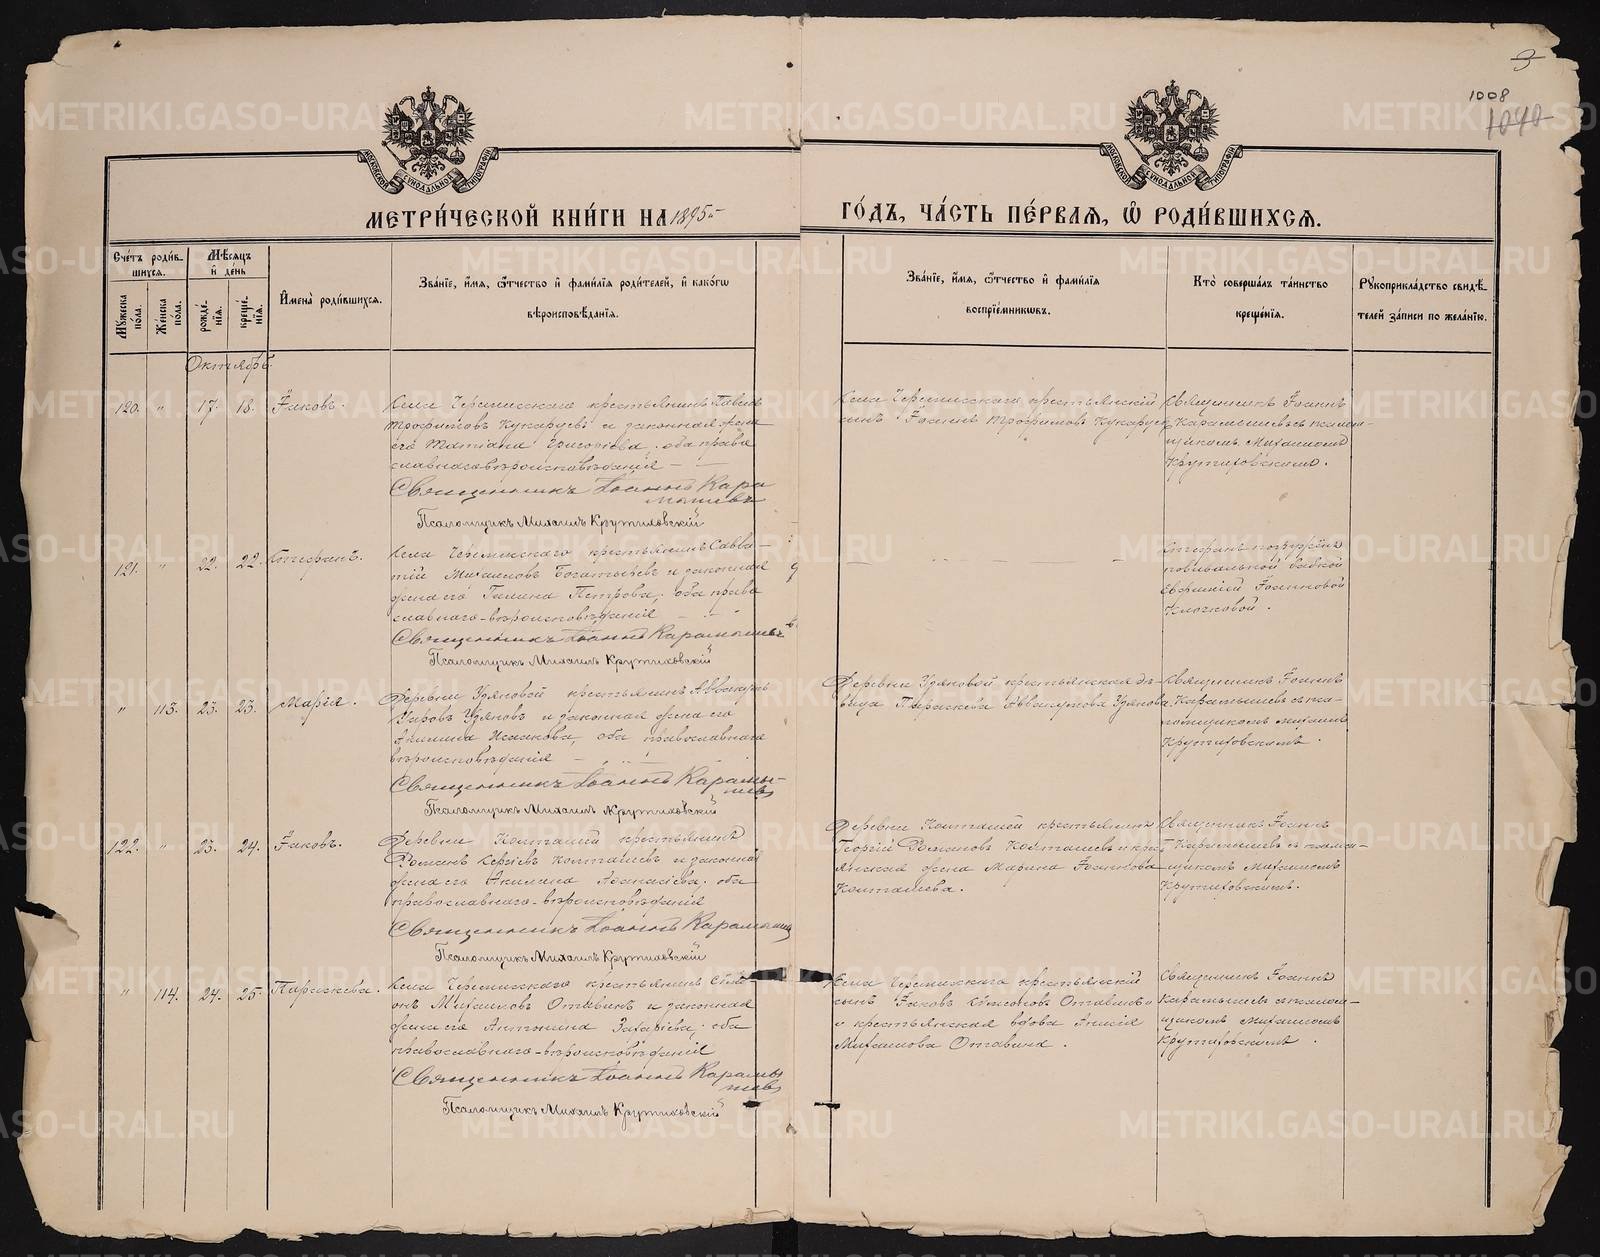 3
1008
1040
МОСКОВСКОЙ СУНОДАЛЬНОЙ ТИПОГРАФІИ
МОСКОВСКОЙ СУНОДАЛЬНОЙ ТИПОГРАФІИ
МЕТРИ́ЧЕСКОЙ КНИ́ГИ НА 1895й
ГО́ДЪ, ЧА́СТЬ ПЕ́РВАЯ, Ѡ РОДИ́ВШИХСЯ.
Сче́тъ роди́в-
шихся.
Му́жеска по́ла.
Же́нска по́ла.
Мѣ́сяцъ
и де́нь
рожде́-
нїя.
креще́-
нїя.
И҆мена̀ роди́вшихся.
Зва́нїе, и҆́мя, ѻ҆́тчество и҆ фами́лїя роди́телей, и҆ како́гѡ
вѣроисповѣ́данїя.
Зва́нїе, и҆́мя, ѻ҆́тчество и҆ фами́лїя
воспрїе́мникѡвъ.
Кто̀ соверша́лъ та́инство
креще́нїя.
Рꙋкоприкла́дство свидѣ́-
телей за́писи по жела́нїю.
Октябрь.
120. " 17. 18. Іаковъ.
Села Черемисскаго крестьянинъ Павелъ
Трофимовъ Кукарцевъ и законная жена
его Татіана Григоріева, оба право
славнаго вѣроисповѣданія
Священникъ Іоаннъ Кара
мышевъ
Псаломщикъ Михаилъ Крутиховскій
Села Черемисскаго крестьянскій
сынъ Іоаннъ Трофимовъ Кукарцевъ
Священникъ Іоаннъ
Карамышевъ съ псалом-
щикомъ Михаиломъ
Крутиховскимъ.
121. " 22. 22. Стефанъ.
Села Черемисскаго крестьянинъ Савва-
тій Михаиловъ Богатыревъ и законная
жена его Галина Петрова, оба право
славнаго вѣроисповѣданія
Священникъ Іоаннъ Карамышевъ
Псаломщикъ Михаилъ Крутиховскій
Стефанъ погруженъ
повивальной бабкой
Евфиміей Іоанновой
Клочковой.
" 113. 23. 23. Марія.
Деревни Удяновой крестьянинъ Аввакумъ
Удяновъ и законная жена его
Акилина Исаакова, оба православнаго
вѣроисповѣданія
Священникъ Іоаннъ Карамы-
шевъ
Псаломщикъ Михаилъ Крутиховскій
Деревни Удяновой крестьянская дѣ-
вица Параскева Аввакумова Удянова.
Священникъ Іоаннъ
Карамышевъ съ пса-
ломщикомъ Михаиломъ
Крутиховскимъ.
122. " 23. 24. Іаковъ.
Деревни Колташей крестьянинъ
Романъ Сергіевъ Колташевъ и законная
жена его Акилина Аѳанасіева, оба
православнаго вѣроисповѣданія
Священникъ Іоаннъ Карамышев
Псаломщикъ Михаилъ Крутиховскій
Деревни Колташей крестьянинъ
Георгій Романовъ Колташевъ и крест
янская жена Марина Іоаннова
Колташева.
Священникъ Іоаннъ
Карамышевъ съ псалом-
щикомъ Михаиломъ
Крутиховскимъ.
" 114. 24. 25. Параскева.
Села Черемисскаго крестьянинъ Симе-
онъ Михаиловъ Отавинъ и законная
жена его Антонина Захаріева, оба
православнаго вѣроисповѣданія
Священникъ Іоаннъ Карамы
шевъ
Псаломщикъ Михаилъ Крутиховскій
Села Черемисскаго крестьянскій
сынъ Іаковъ Симеоновъ Отавинъ
и крестьянская вдова Анисія
Михаилова Отавина.
Священникъ Іоаннъ
Карамышевъ съ псалом-
щикомъ Михаиломъ
Крутиховскимъ.
METRIKI.GASO-URAL.RU